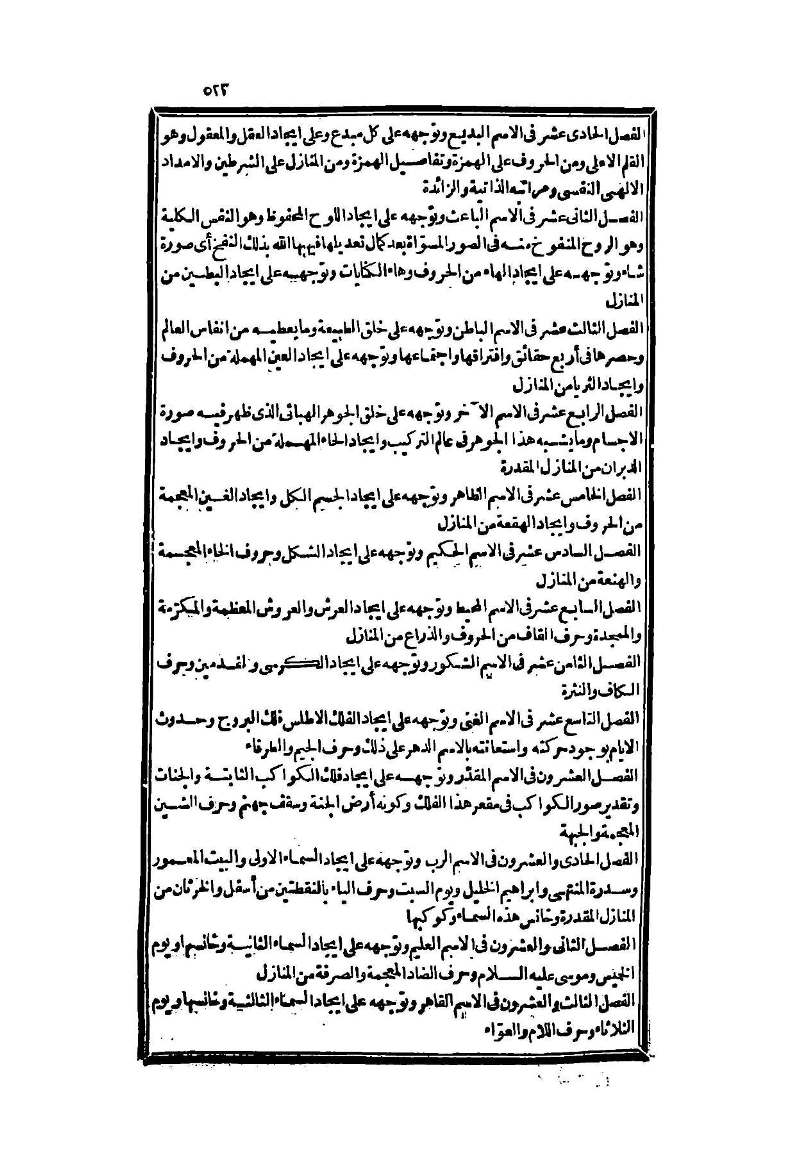 ٥٢٣
الفصل الحادى عشر فى الاسم البديع وتوجهه على كل مبدع وعلى ايجاد العقل والمعقول وهو
القلم الاعلى ومن الحروف على الهمزة وتفاصيل الهمزة ومن المنازل على الشرطين والامداد
الالهى النفسى ومراتبه الذاتية والزائدة
الفصل الثانى عشر فى الاسم الباعث وتوجهه على ايجاد اللوح المحفوظ وهو النفس الكلية
وهو الروح المنفوخ منه فى الصور المسوّاة بعد كمال تعديلها فيهبها الله بذلك النفخ أى صورة
شاء وتوجهه على ايجاد الهاء من الحروف وهاء الكنايات وتوجهه على ايجاد البطين من
المنازل
الفصل الثالث عشر فى الاسم الباطن وتوجهه على خلق الطبيعة وما يعطيه من انفاس العالم
وحصرها فى أربع حقائق وافتراقها واجتماعها وتوجهه على ايجاد العين المهملة من الحروف
وايجاد الثريا من المنازل
الفصل الرابع عشر فى الاسم الآخر وتوجهه على خلق الجوهر الهبائى الذى ظهر فيه صورة
الاجسام وما يشبه هذا الجوهر فى عالم التركيب وايجاد الحاء المهملة من الحروف وايجاد
الدبران من المنازل المقدرة
الفصل الخامس عشر فى الاسم الظاهر وتوجهه على ايجاد الجسم الكل وايجاد الغين المعجمة
من الحروف وايجاد الهقعة من المنازل
الفصل السادس عشر فى الاسم الحكيم وتوجهه على ايجاد الشكل وحروف الخاء المعجمة
والهنعة من المنازل
الفصل السابع عشر فى الاسم المحيط وتوجهه على ايجاد العرش والعروش المعظمة والمكرّمة
والممجدة وحرف القاف من الحروف والذراع من المنازل
الفصل الثامن عشر فى الاسم الشكور وتوجهه على ايجاد الكرسى والقدمين وحرف
الكاف والنثرة
الفصل التاسع عشر فى الاسم الغنى وتوجهه على ايجاد الفلك الاطلس فلك البروج وحدوث
الايام بوجود حركته واستعانته بالاسم الدهر على ذلك وحرف الجيم والطرفاء
الفصل العشرون فى الاسم المقدّر وتوجهه على ايجاد فلك الكواكب الثابتة والجنات
وتقدير صور الكواكب فى مقعر هذا الفلك وكونه أرض الجنة وسقف جهنم وحرف الشين
المعجمة والجبهة
الفصل الحادى والعشرون فى الاسم الرب وتوجهه على ايجاد السماء الاولى والبيت المعمور
وسدرة المنتهى وابراهيم الخليل ويوم السبت وحرف الياء بالنقطتين من أسفل والخرثان من
المنازل المقدرة وخانس هذه السماء وكوكبها
الفصل الثانى والعشرون فى الاسم العليم وتوجهه على ايجاد السماء الثانية وخانسها ويوم
الخميس وموسى عليه السلام وحرف الضاد المعجمة والصرفة من المنازل
الفصل الثالث والعشرون فى الاسم القاهر وتوجهه على ايجاد السماء الثالثية وخانسها ويوم
الثلاثاء وحرف اللام والعوّاء